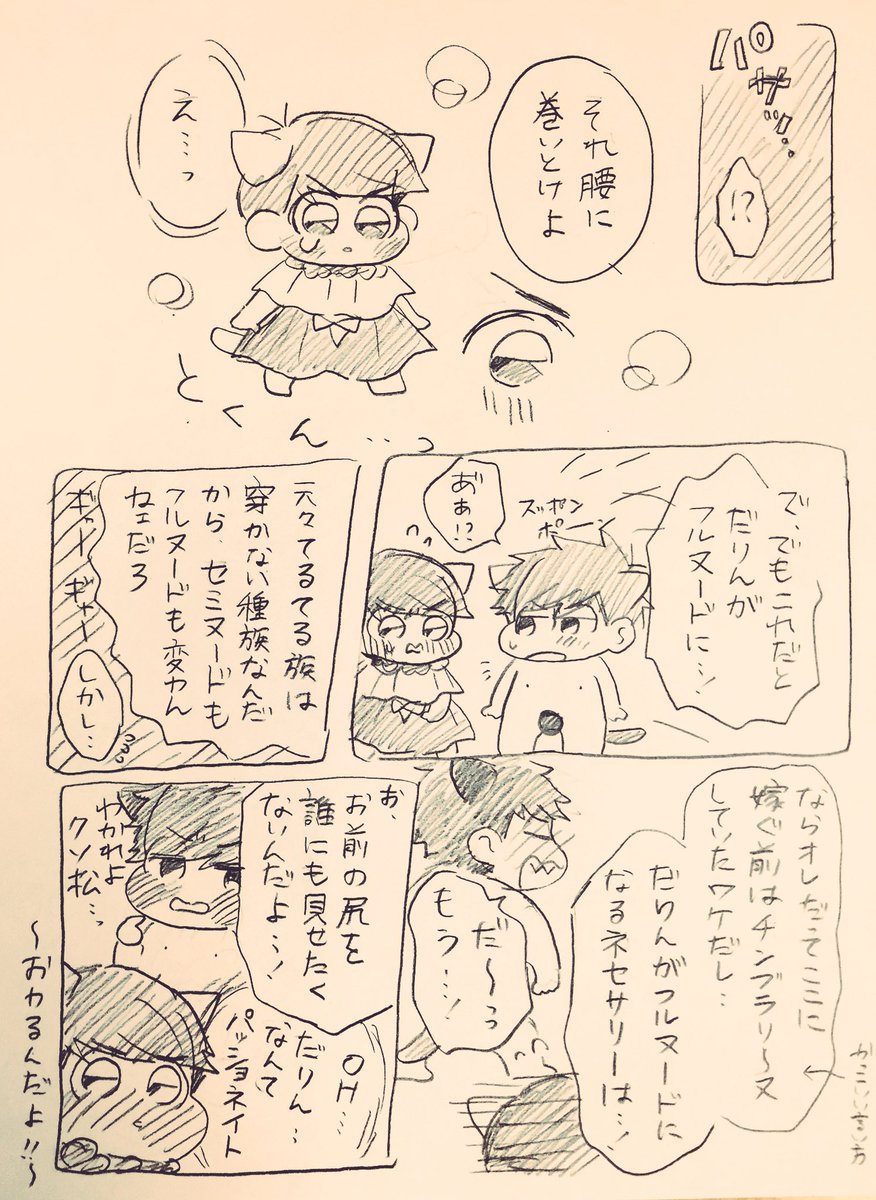 パサッ…
!?
それ腰に
巻いとけよ
え…っ
とくん…っ
で、でもこれだと
だりんが
フルヌードに…!
スッポン
ポーン
あぁ!?
元々てるてる族は
穿かない種族なんだ
から、セミヌードも
フルヌードも変わん
ねェだろ
ギャー ギャー
しかし…
ならオレだってここに
嫁ぐ前はチンブラリ〜ヌ
していたワケだし…
かっこいい言い方
だりんがフルヌードに
なるネセサリーは…!
だ〜〜っ
もう…!
お、
お前の尻を
誰にも見せたく
ないんだよ…!
わかれよ
クソ松…っ
OH…
だりん…
なんて
パッショネイト
〜おわるんだよ!!〜